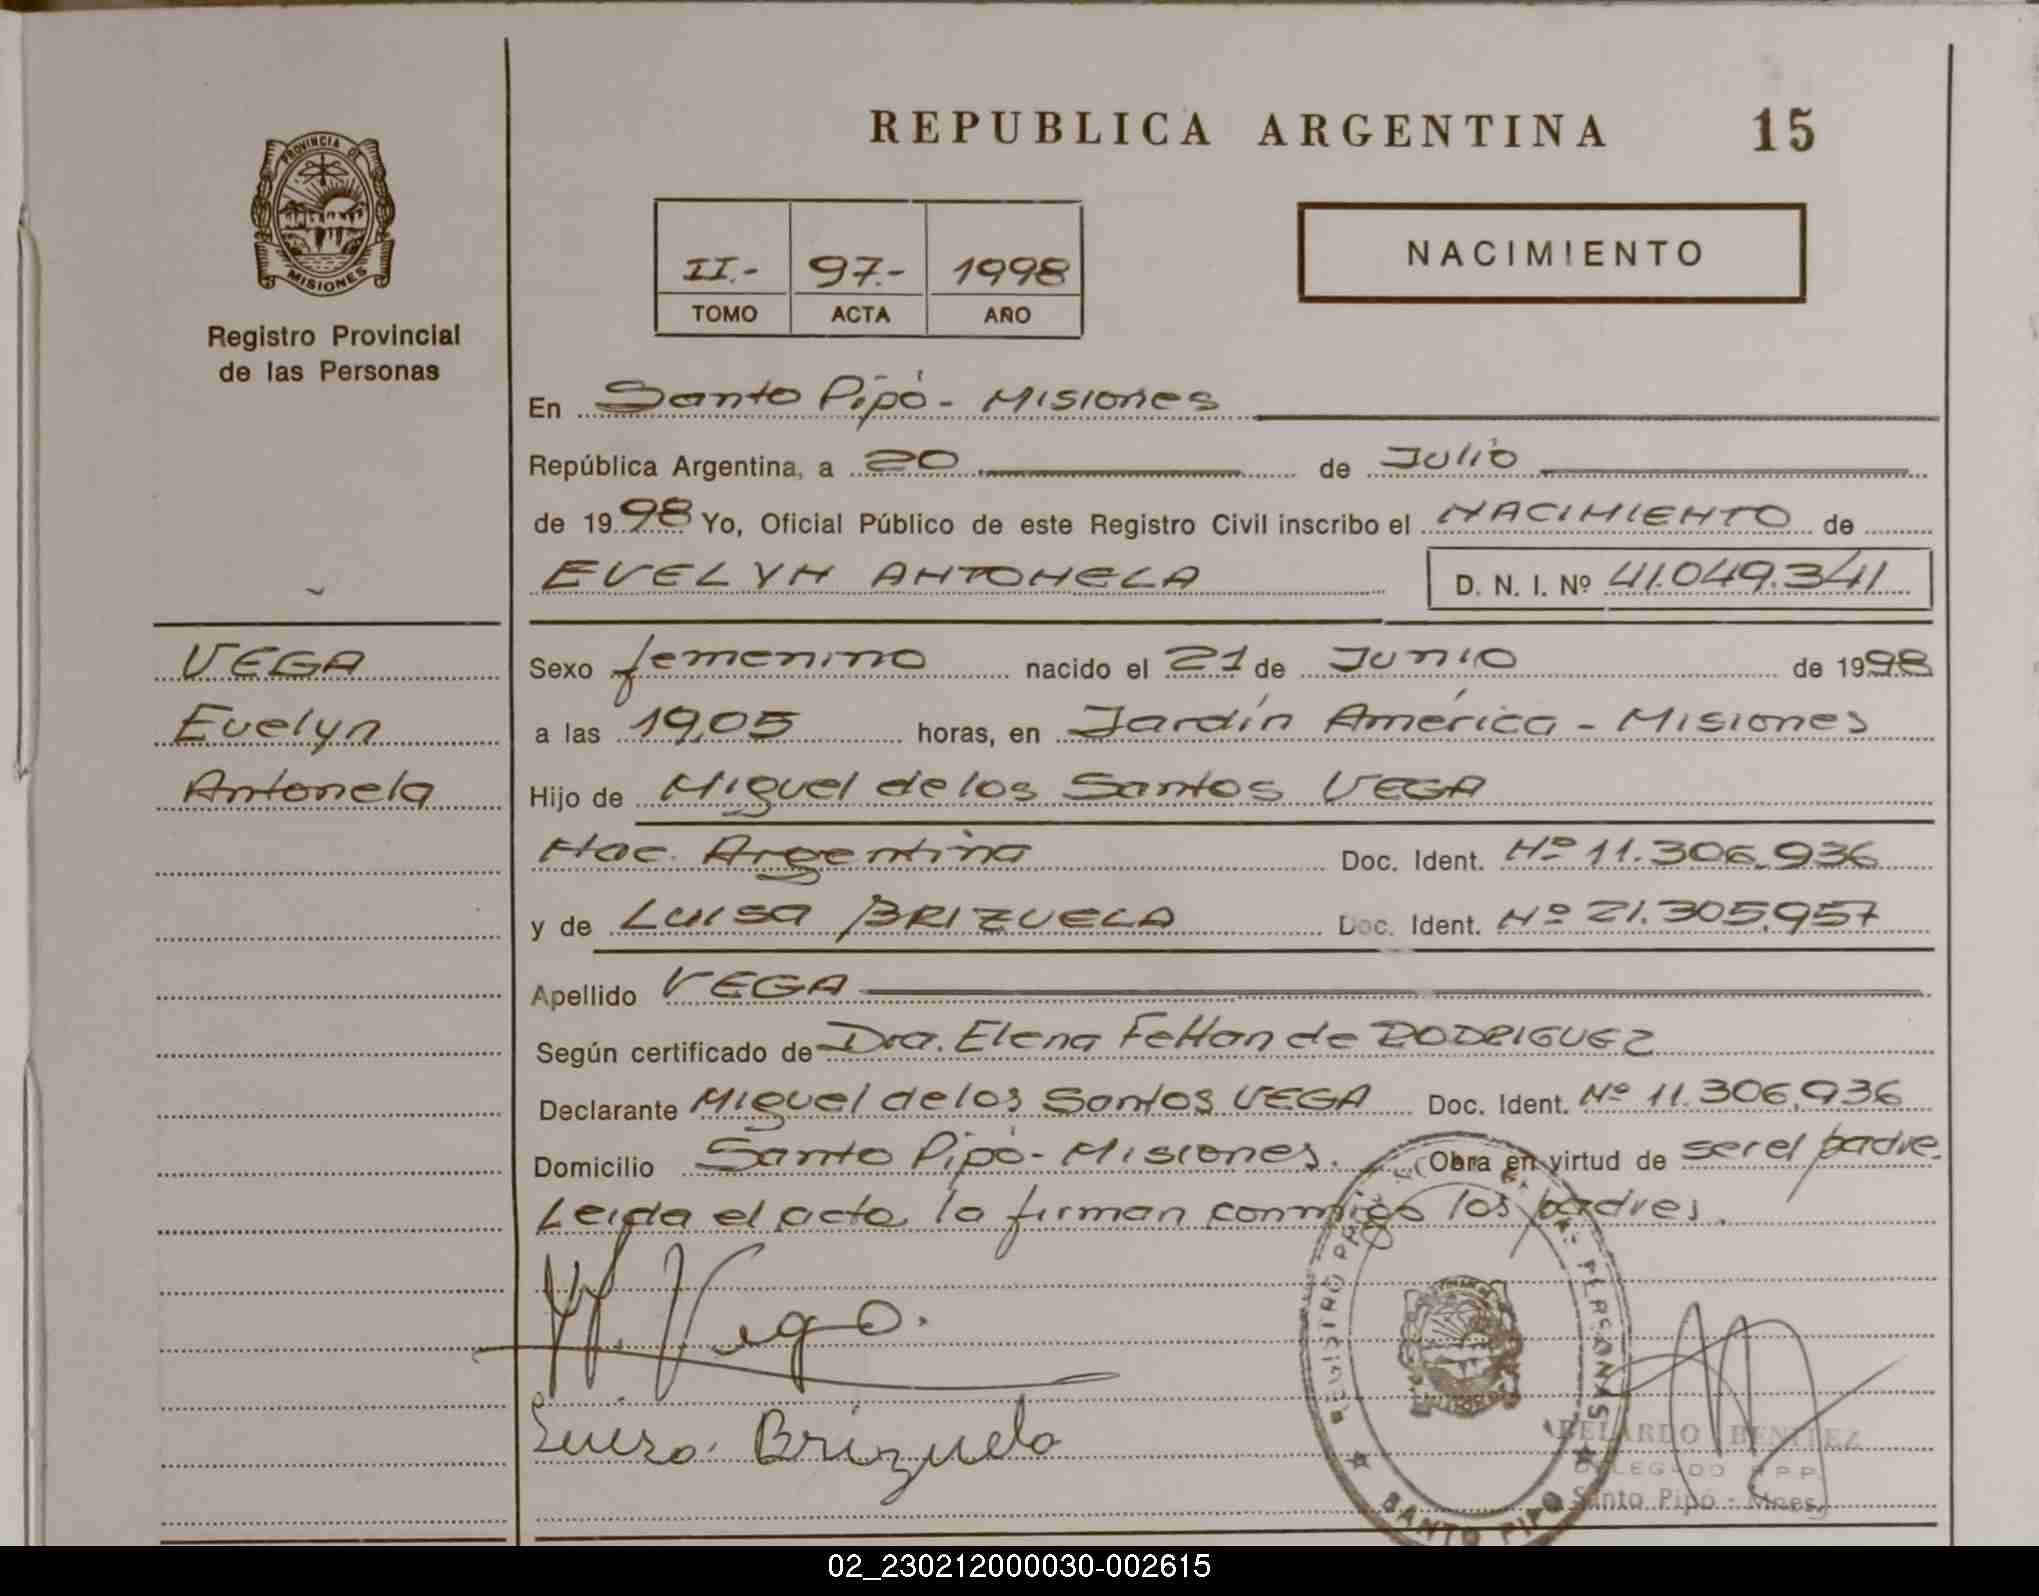 REPUBLICA ARGENTINA 15
PROVINCIA DE
MISIONES
Registro Provincial
de las Personas
II.- 97.- 1998
TOMO ACTA AÑO
NACIMIENTO
En Santo Pipó - Misiones
República Argentina, a 20 de Julio
de 1998 Yo, Oficial Público de este Registro Civil inscribo el NACIMIENTO de
EVELYN ANTONELA D. N. I. Nº 41.049.341
VEGA
Evelyn
Antonela
Sexo femenino nacido el 21 de Junio de 1998
a las 19,05 horas, en Jardín América - Misiones
Hijo de Miguel de los Santos VEGA
Nac. Argentina Doc. Ident. Nº 11.306.936
y de LUISA BRIZUELA Doc. Ident. Nº 21.305.957
Apellido VEGA
Según certificado de Dra. Elena de RODRIGUEZ
Declarante Miguel de los Santos VEGA Doc. Ident. Nº 11.306.936
Domicilio Santo Pipó - Misiones. Obra en virtud de ser el padre.
Leida el acta, la firman conmigo los padres.
M. Vega.
Luisa Brizuela
REGISTRO PERSONAS
SANTO PIPO
BENITEZ
DELEGADO R.P.P.
Santo Pipó - Mnes
02_230212000030-002615